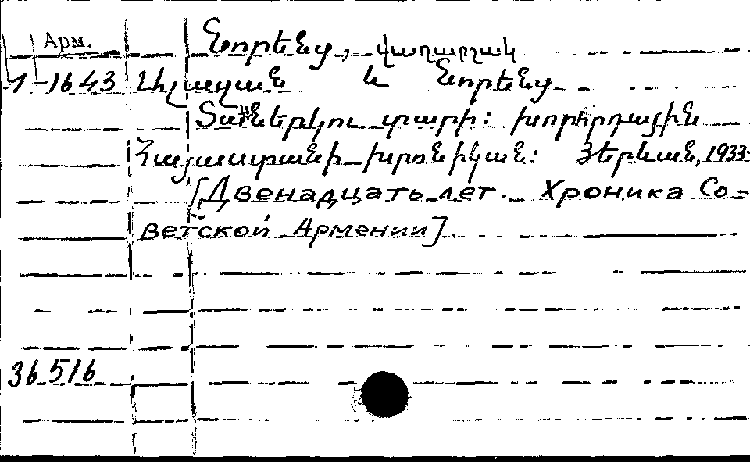 Арм.
Նորենց, Վաղարշակ
1-1643 Ալազան և Նորենց
Տասներկու տարի: Խորհրդային
Հայաստանի խրոնիկան: Յերևան, 1933.
[Двенадцать лет. Хроника Со-
ветской Армении]
36516